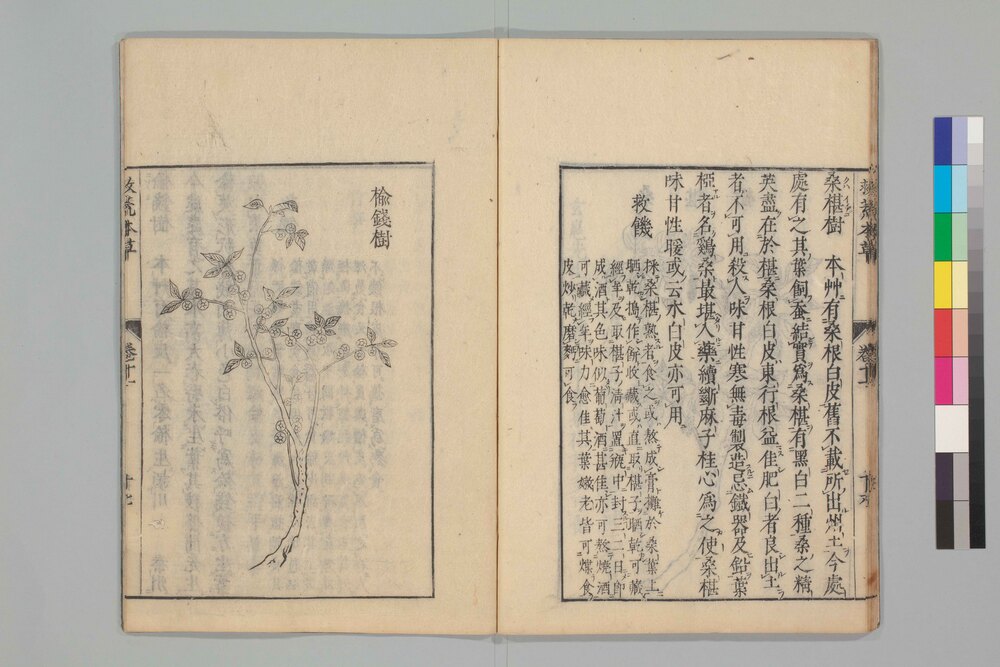 桑椹樹　本艸有桑根白皮舊不載所出州土今處
處有之其葉飼蚕結實為桑椹有黑白二種桑之精
英盡在於椹桑根白皮東行根益佳肥白者良出土
者不可用殺人味甘性寒無毒製造忌鐵器及鉛葉
椏者名鷄桑最堪入藥續斷麻子桂心為之使桑椹
味甘性暖或云木白皮亦可用
救饑
採桑椹熟者食之或熬成膏攤於桑葉上
晒乾搗作餅收藏或直取椹子晒乾可藏
經年及取椹子清汁置瓶中封三二日即
成酒其色味似葡萄酒甚佳亦可熬燒酒
可藏經年味力愈佳其葉嫩老皆可煠食
皮炒乾磨麵可食
榆錢樹
救荒本草